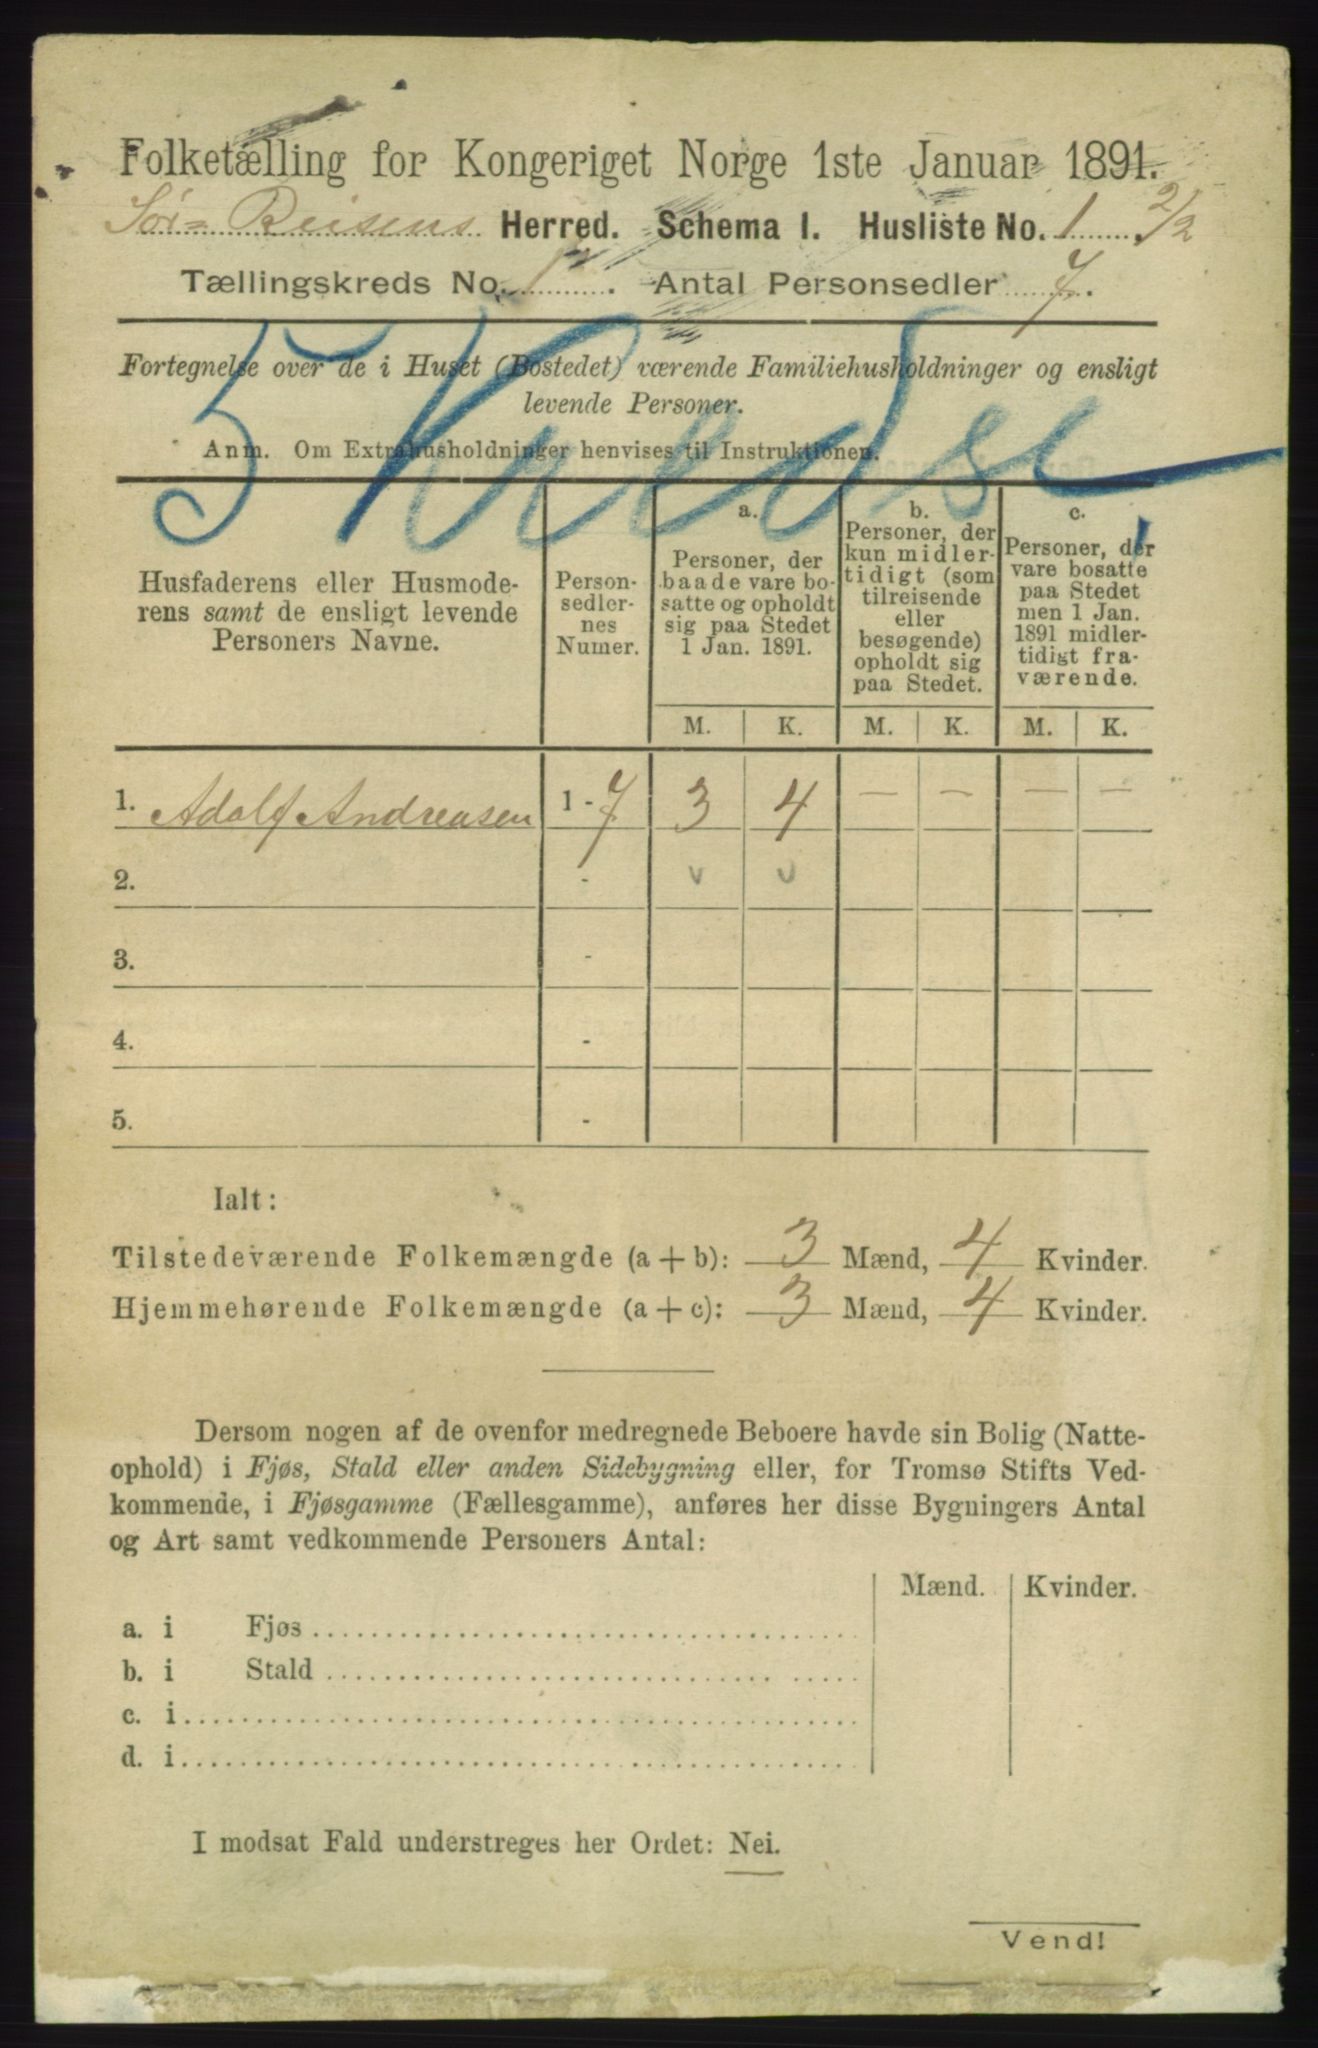 Folketælling for Kongeriget Norge 1ste Januar 1891.
Sör-Reisens Herred. Schema I. Husliste No. 1 2/2
Tællingskreds No. 1. Antal Personsedler 7.
5 Kredse
Fortegnelse over de i Huset (Bostedet) værende Familiehusholdninger og ensligt
levende Personer.
Anm. Om Extrahusholdninger henvises til Instruktionen.
Husfaderens eller Husmode-
rens samt de ensligt levende
Personers Navne.
Person-
sedler-
nes
Numer.
a.
Personer, der
baade vare bo-
satte og opholdt
sig paa Stedet
1 Jan. 1891.
b.
Personer, der
kun midler-
tidigt (som
tilreisende
eller
besøgende)
opholdt sig
paa Stedet.
c.
Personer, der
vare bosatte
paa Stedet
men 1 Jan.
1891 midler-
tidigt fra-
værende.
M. K. M. K. M. K.
1. Adolf Andreasen 1 - 7 3 4 — — — —
2. - v v
3. -
4. -
5. -
Ialt:
Tilstedeværende Folkemængde (a + b): 3 Mænd, 4 Kvinder.
Hjemmehørende Folkemængde (a + c): 3 Mænd, 4 Kvinder.
Dersom nogen af de ovenfor medregnede Beboere havde sin Bolig (Natte-
ophold) i Fjøs, Stald eller anden Sidebygning eller, for Tromsø Stifts Ved-
kommende, i Fjøsgamme (Fællesgamme), anføres her disse Bygningers Antal
og Art samt vedkommende Personers Antal:
Mænd. Kvinder.
a. i Fjøs
b. i Stald
c. i
d. i
I modsat Fald understreges her Ordet: Nei.
Vend!